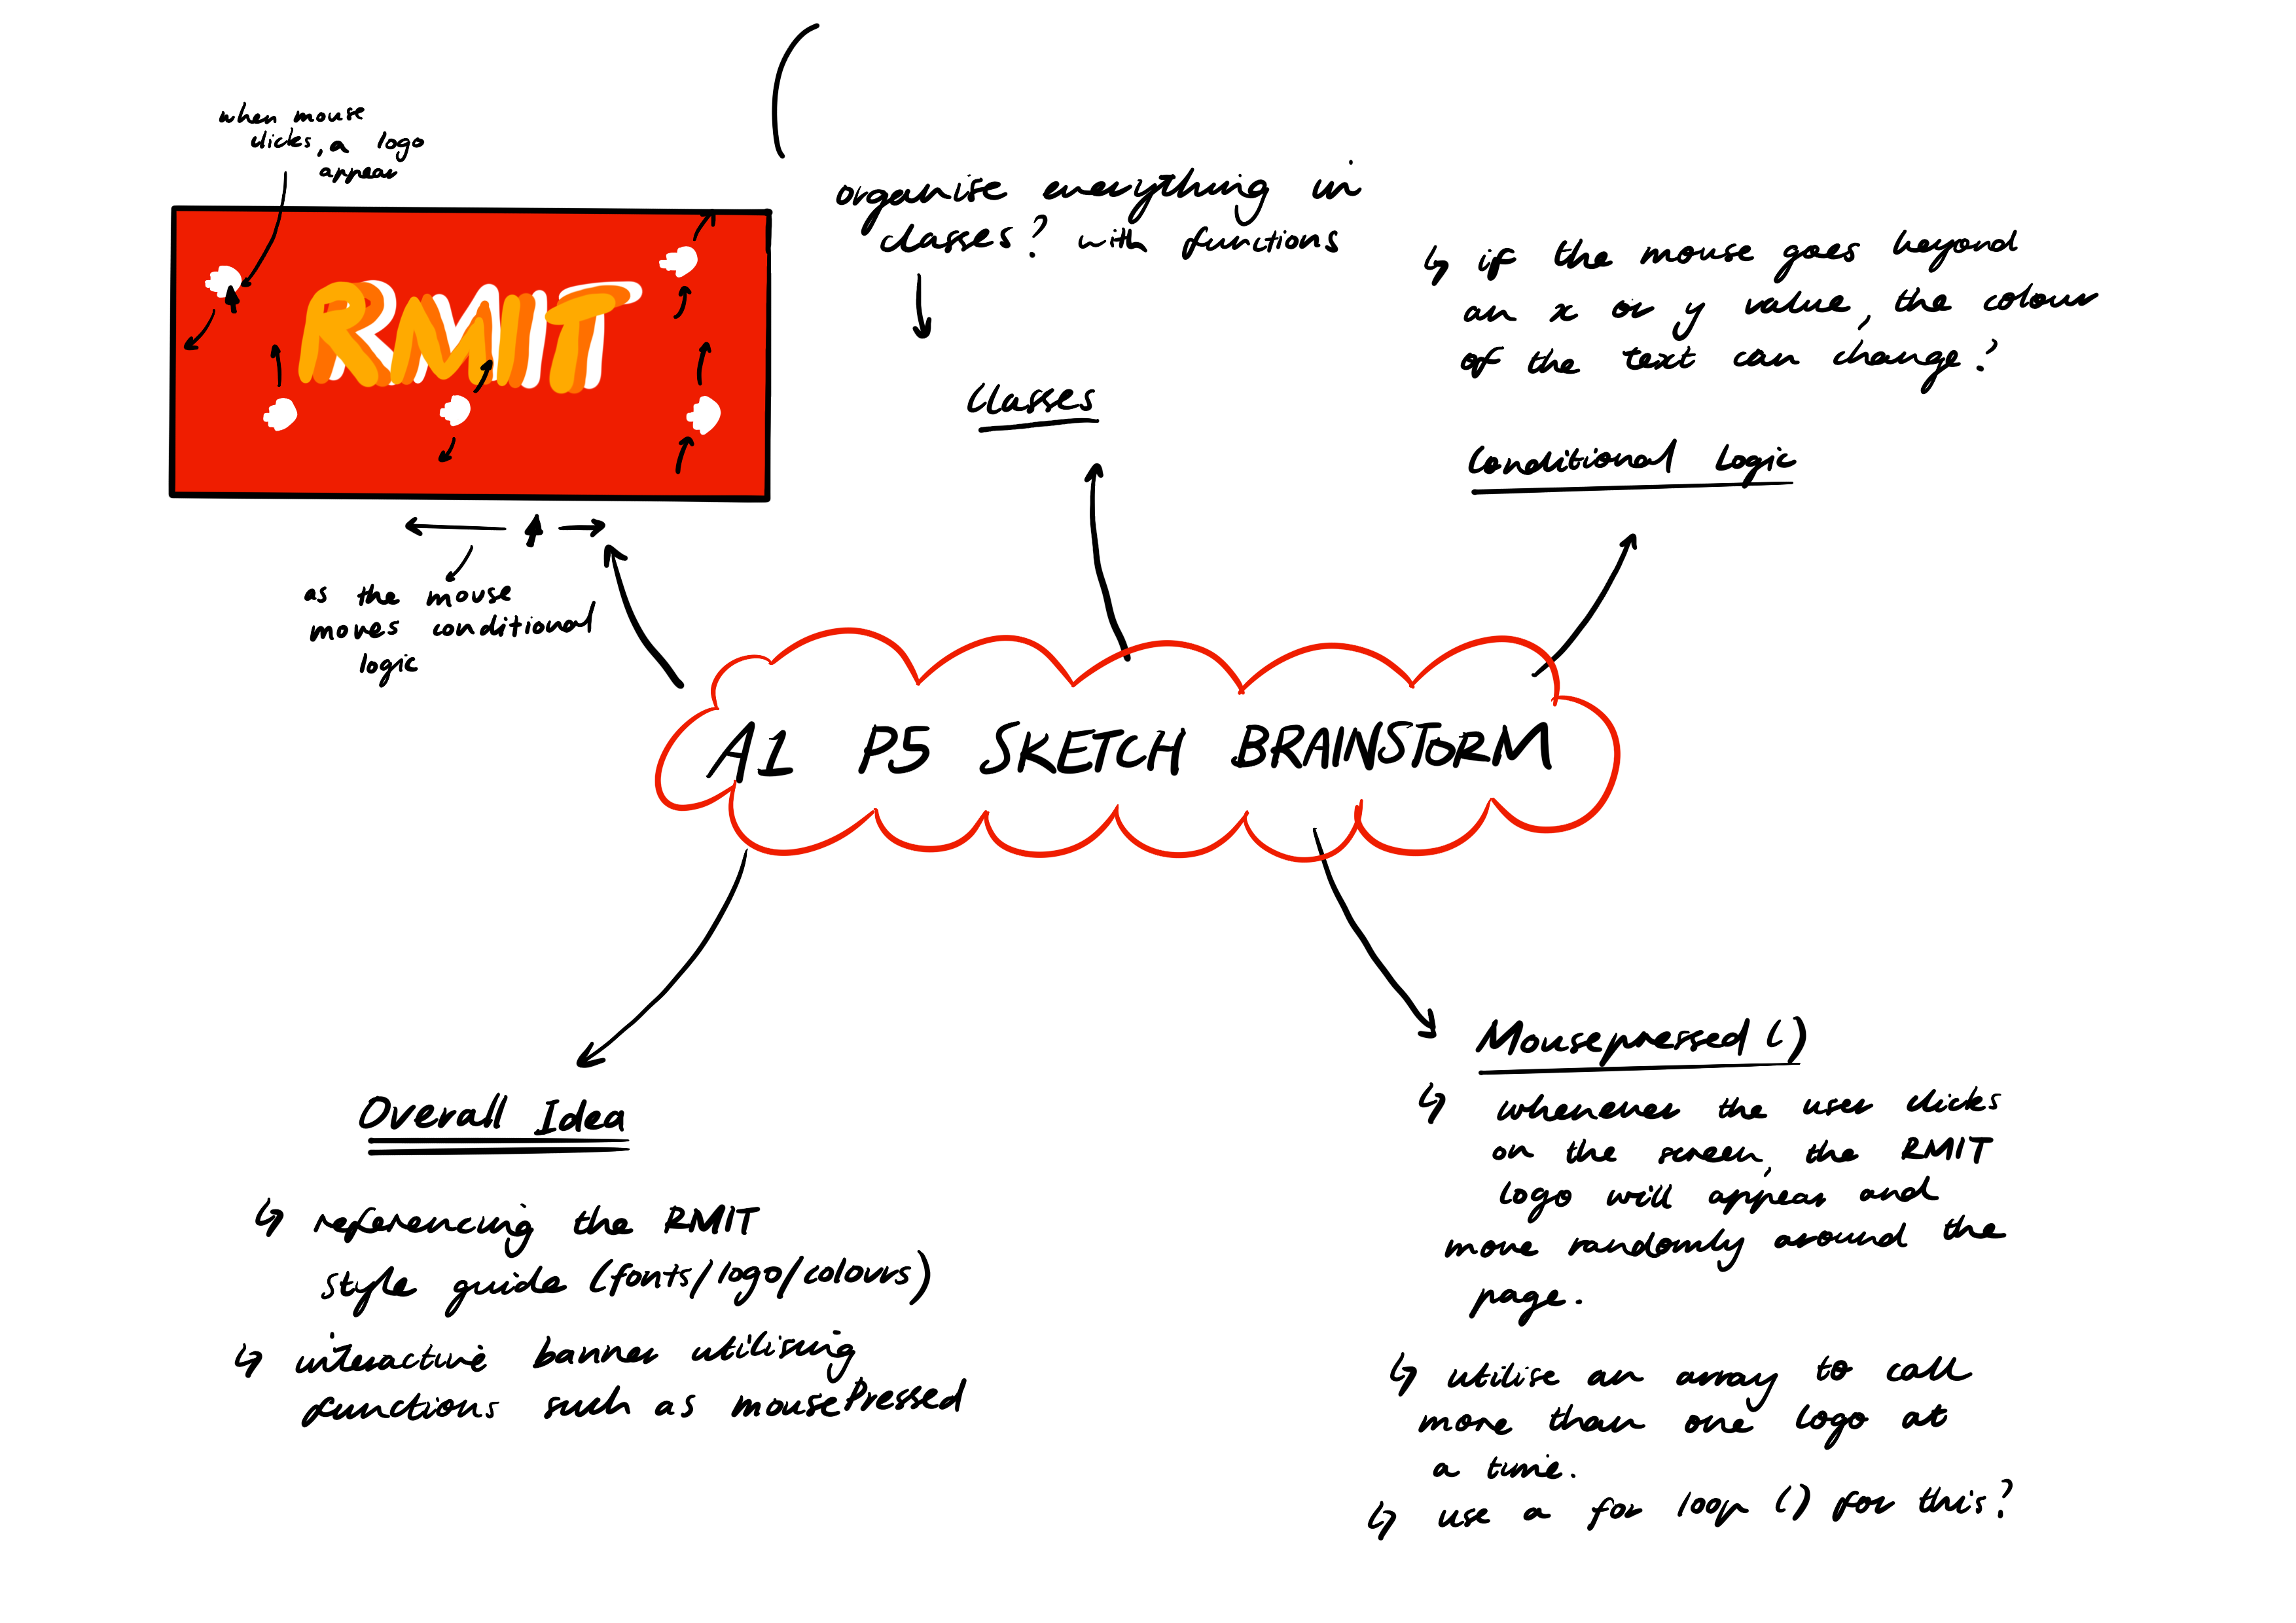 when mouse
clicks, a logo
appear
RMIT
as the mouse
moves conditional
logic
organise everything in
classes? with functions
Classes
↳ if the mouse goes beyond
an x or y value, the colour
of the text can change?
Conditional Logic
A1 P5 SKETCH BRAINSTORM
Overall Idea
↳ referencing the RMIT
style guide (fonts/logo/colours)
↳ interactive banner utilising
functions such as mousePressed
Mousepressed ()
↳ whenever the user clicks
on the screen, the RMIT
logo will appear and
move randomly around the
page.
↳ utilise an array to call
more than one logo at
a time.
↳ use a for loop () for this?